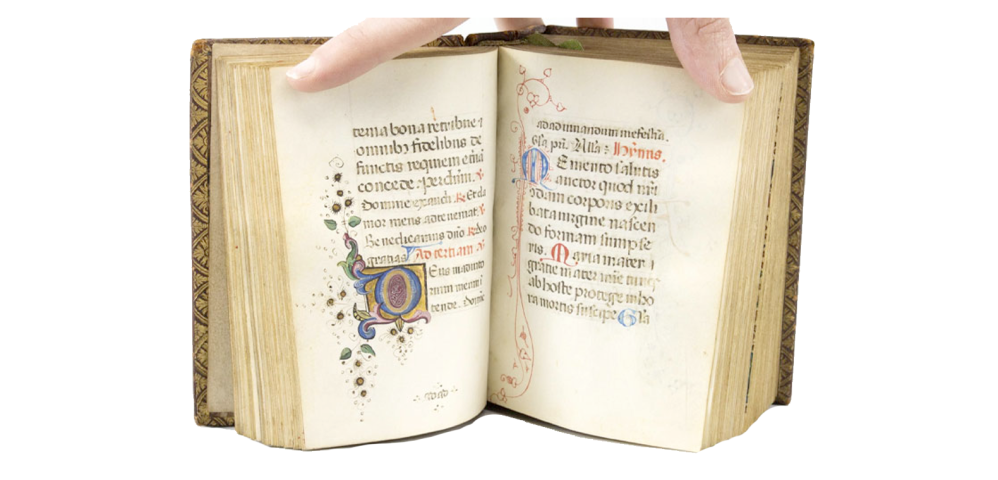 tema bona retribue ⁊
omnibꝰ fidelibus de
functis requiem etnā
concede. Per chrm. ℟.
Domine exaudi. ℟. Et cla
mor meus ad te ueniat. ℣.
Benedicamus dño. ℟. Deo
gratias. Ad tertiam. ℣.
Deus in adiuto
rium meum i
tende. Domīe
ad adiuuandum me festīa.
Gl̄a pr̄i. All̄a: Hymnus.
Memento salutis
auctor quod nr̄i
quōdam corporis exili
bata uirgine nascen
do formam sumpse
ris. Maria mater
gratie mater mīe tu nos
ab hoste protege in ho
ra mortis suscipe Gl̄a